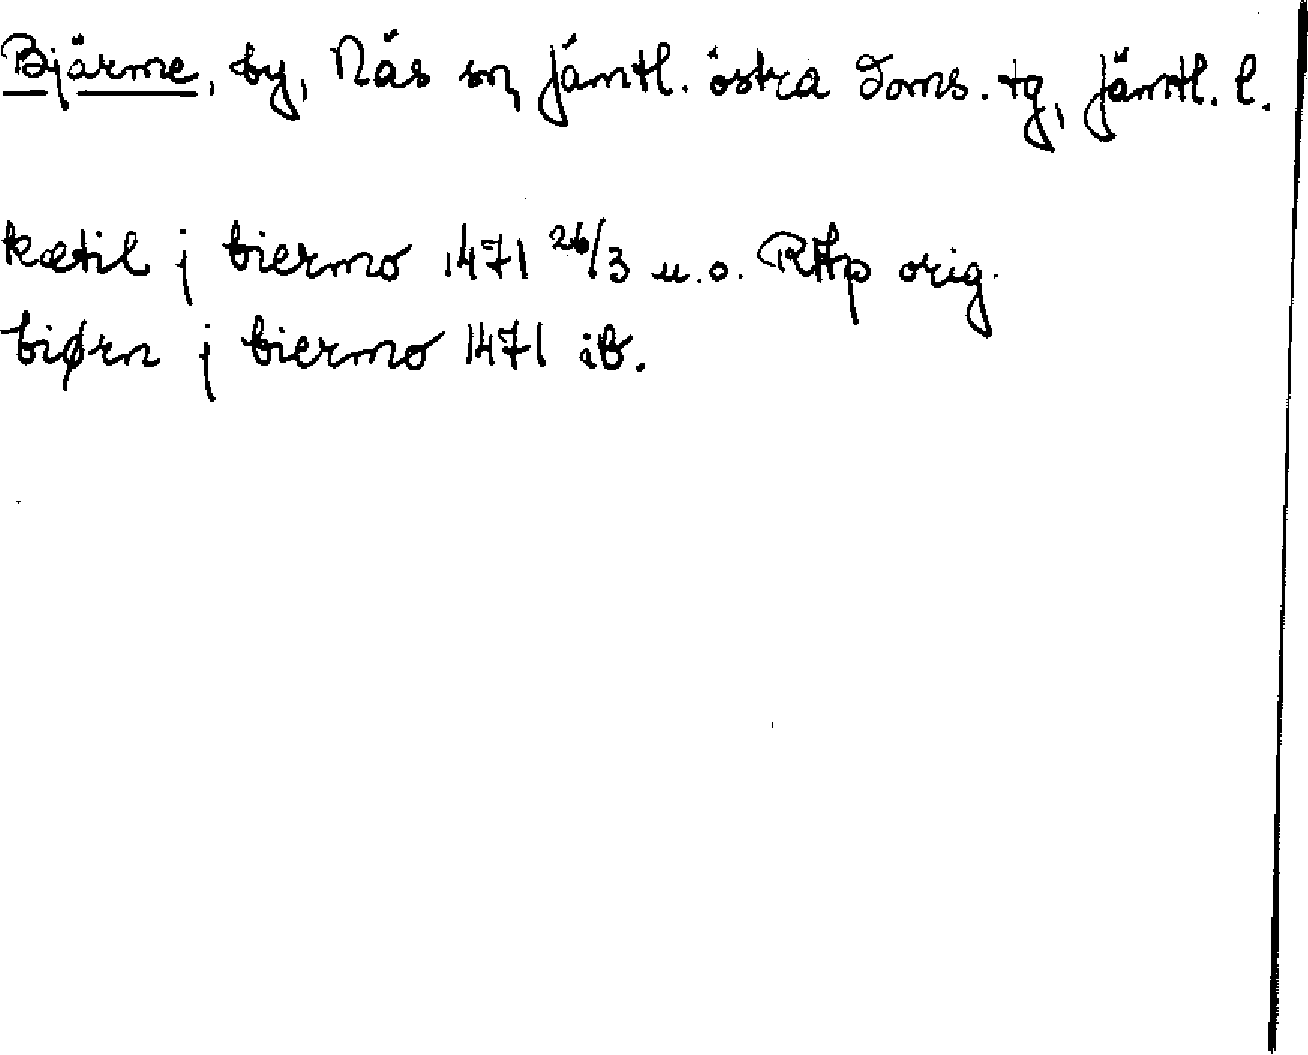 Bjärme, by, Näs sn, Jämtl. östra doms. tg, Jämtl. l.
kætil j biermo 1471 26/3 u.o. RAp orig.
biørn j biermo 1471 ib.